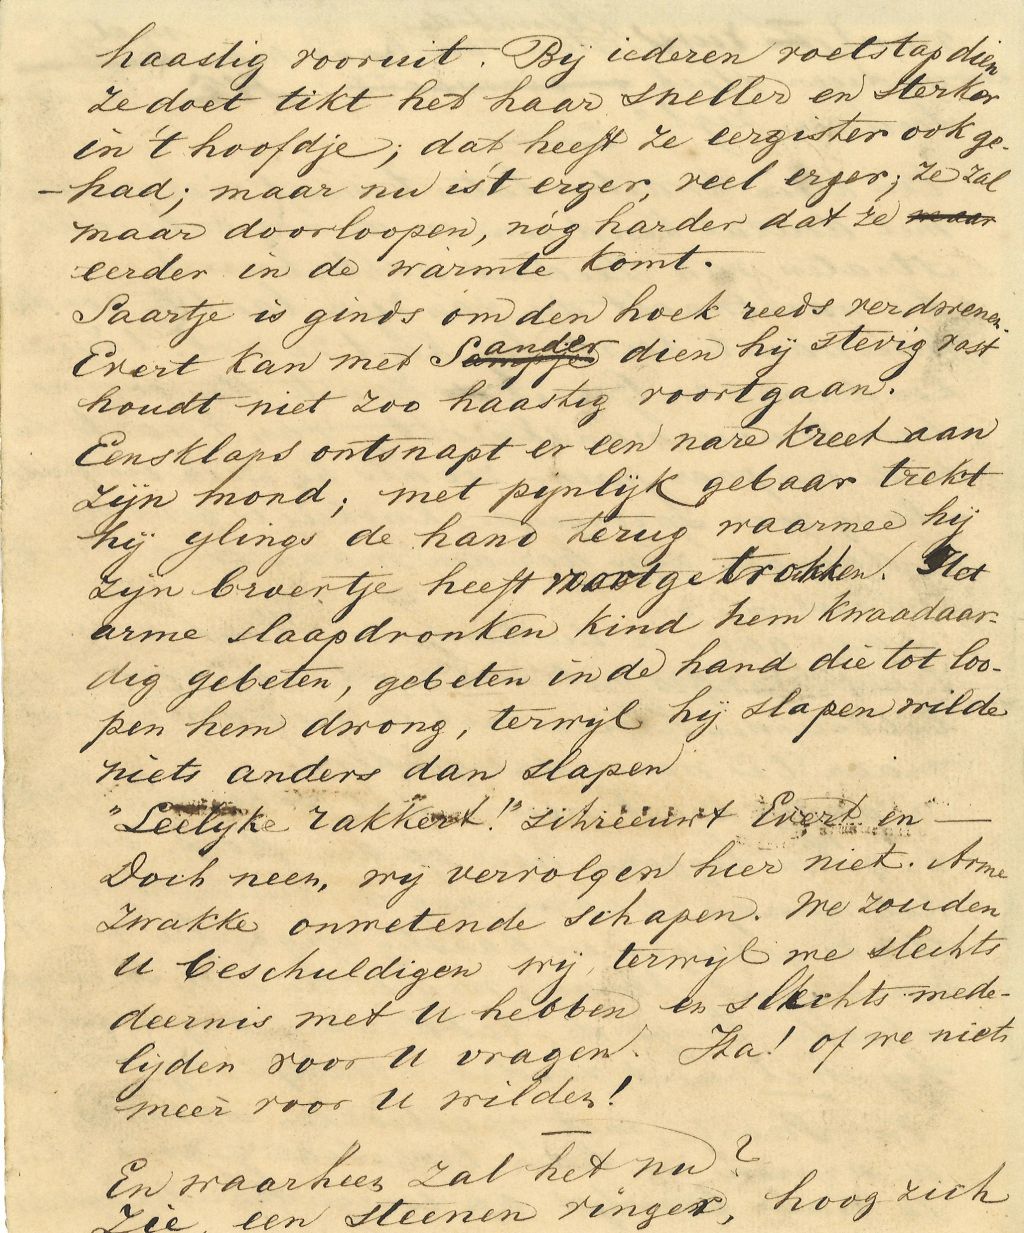 haastig vooruit. Bij iederen voetstap dien
ze doet tikt het haar sneller en sterker
in 't hoofdje; dat heeft ze eergister ook ge-
-had; maar nu is 't erger, veel erger; ze zal
maar doorloopen, nóg harder dat ze maar
eerder in de warmte komt.
Saartje is ginds om den hoek reeds verdwenen.
Evert kan met Sander dien hij stevig vast
houdt niet zoo haastig voortgaan.
Eensklaps ontsnapt er een nare kreet aan
zijn mond; met pijnlijk gebaar trekt
hij ylings de hand terug waarmee hij
zijn broertje heeft voortgetrokken. Het
arme slaapdronken kind hem kwaadaar-
dig gebeten, gebeten in de hand die tot loo-
pen hem dwong, terwijl hij slapen wilde
niets anders dan slapen
"Leelyke rakkert!" schreeuwt Evert en —
Doch neen, wij vervolgen hier niet. Arme
zwakke onwetende schapen. We zouden
U beschuldigen wij, terwijl we slechts
deernis met U hebben en slechts mede-
lijden voor U vragen. Ha! of we niets
meer voor U wilden!
En waarheen zal het nu?
Zie, een steenen vinger, hoog zich